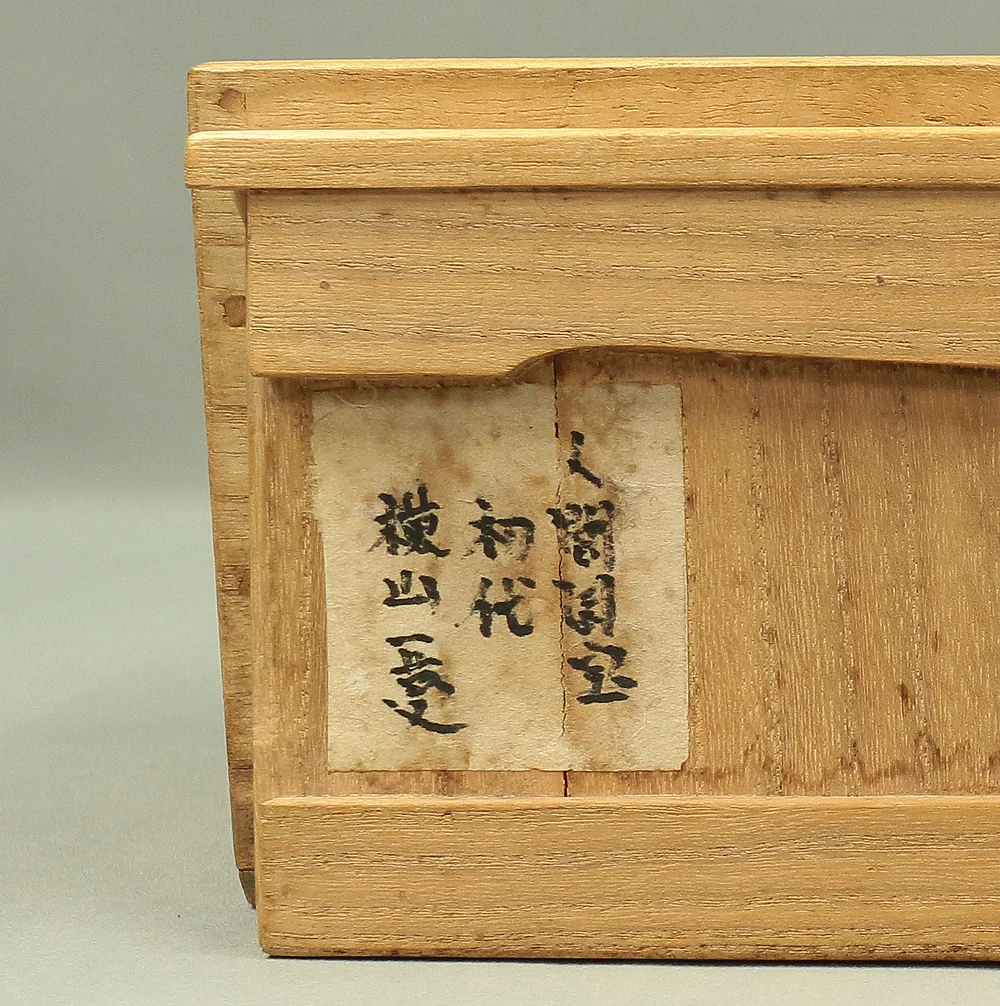 人間国宝
初代
横山一夢